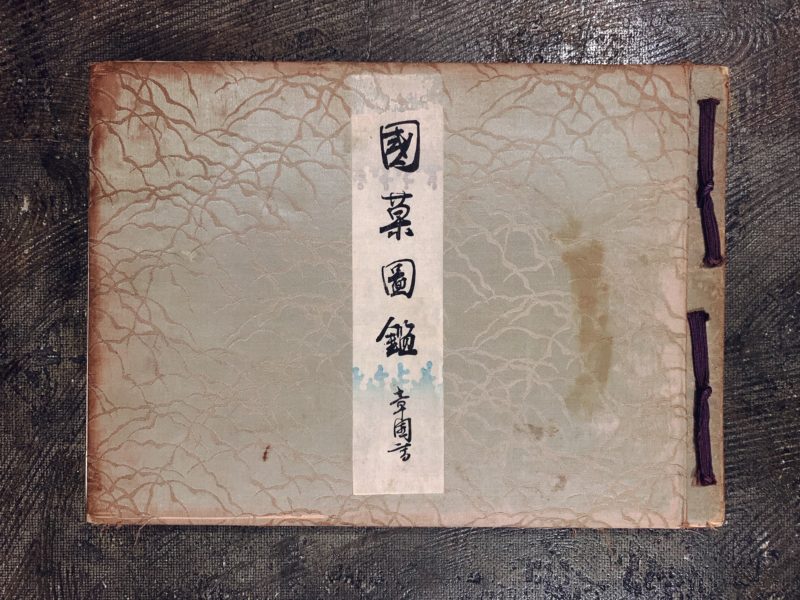 國菓圖鑑
章園書